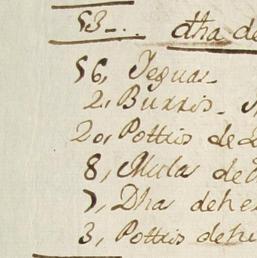 53 dha de
56, Yeguas
2, Burros
20, Potttos de
8, Mula de
7, Dha de he
3, Pottos de he